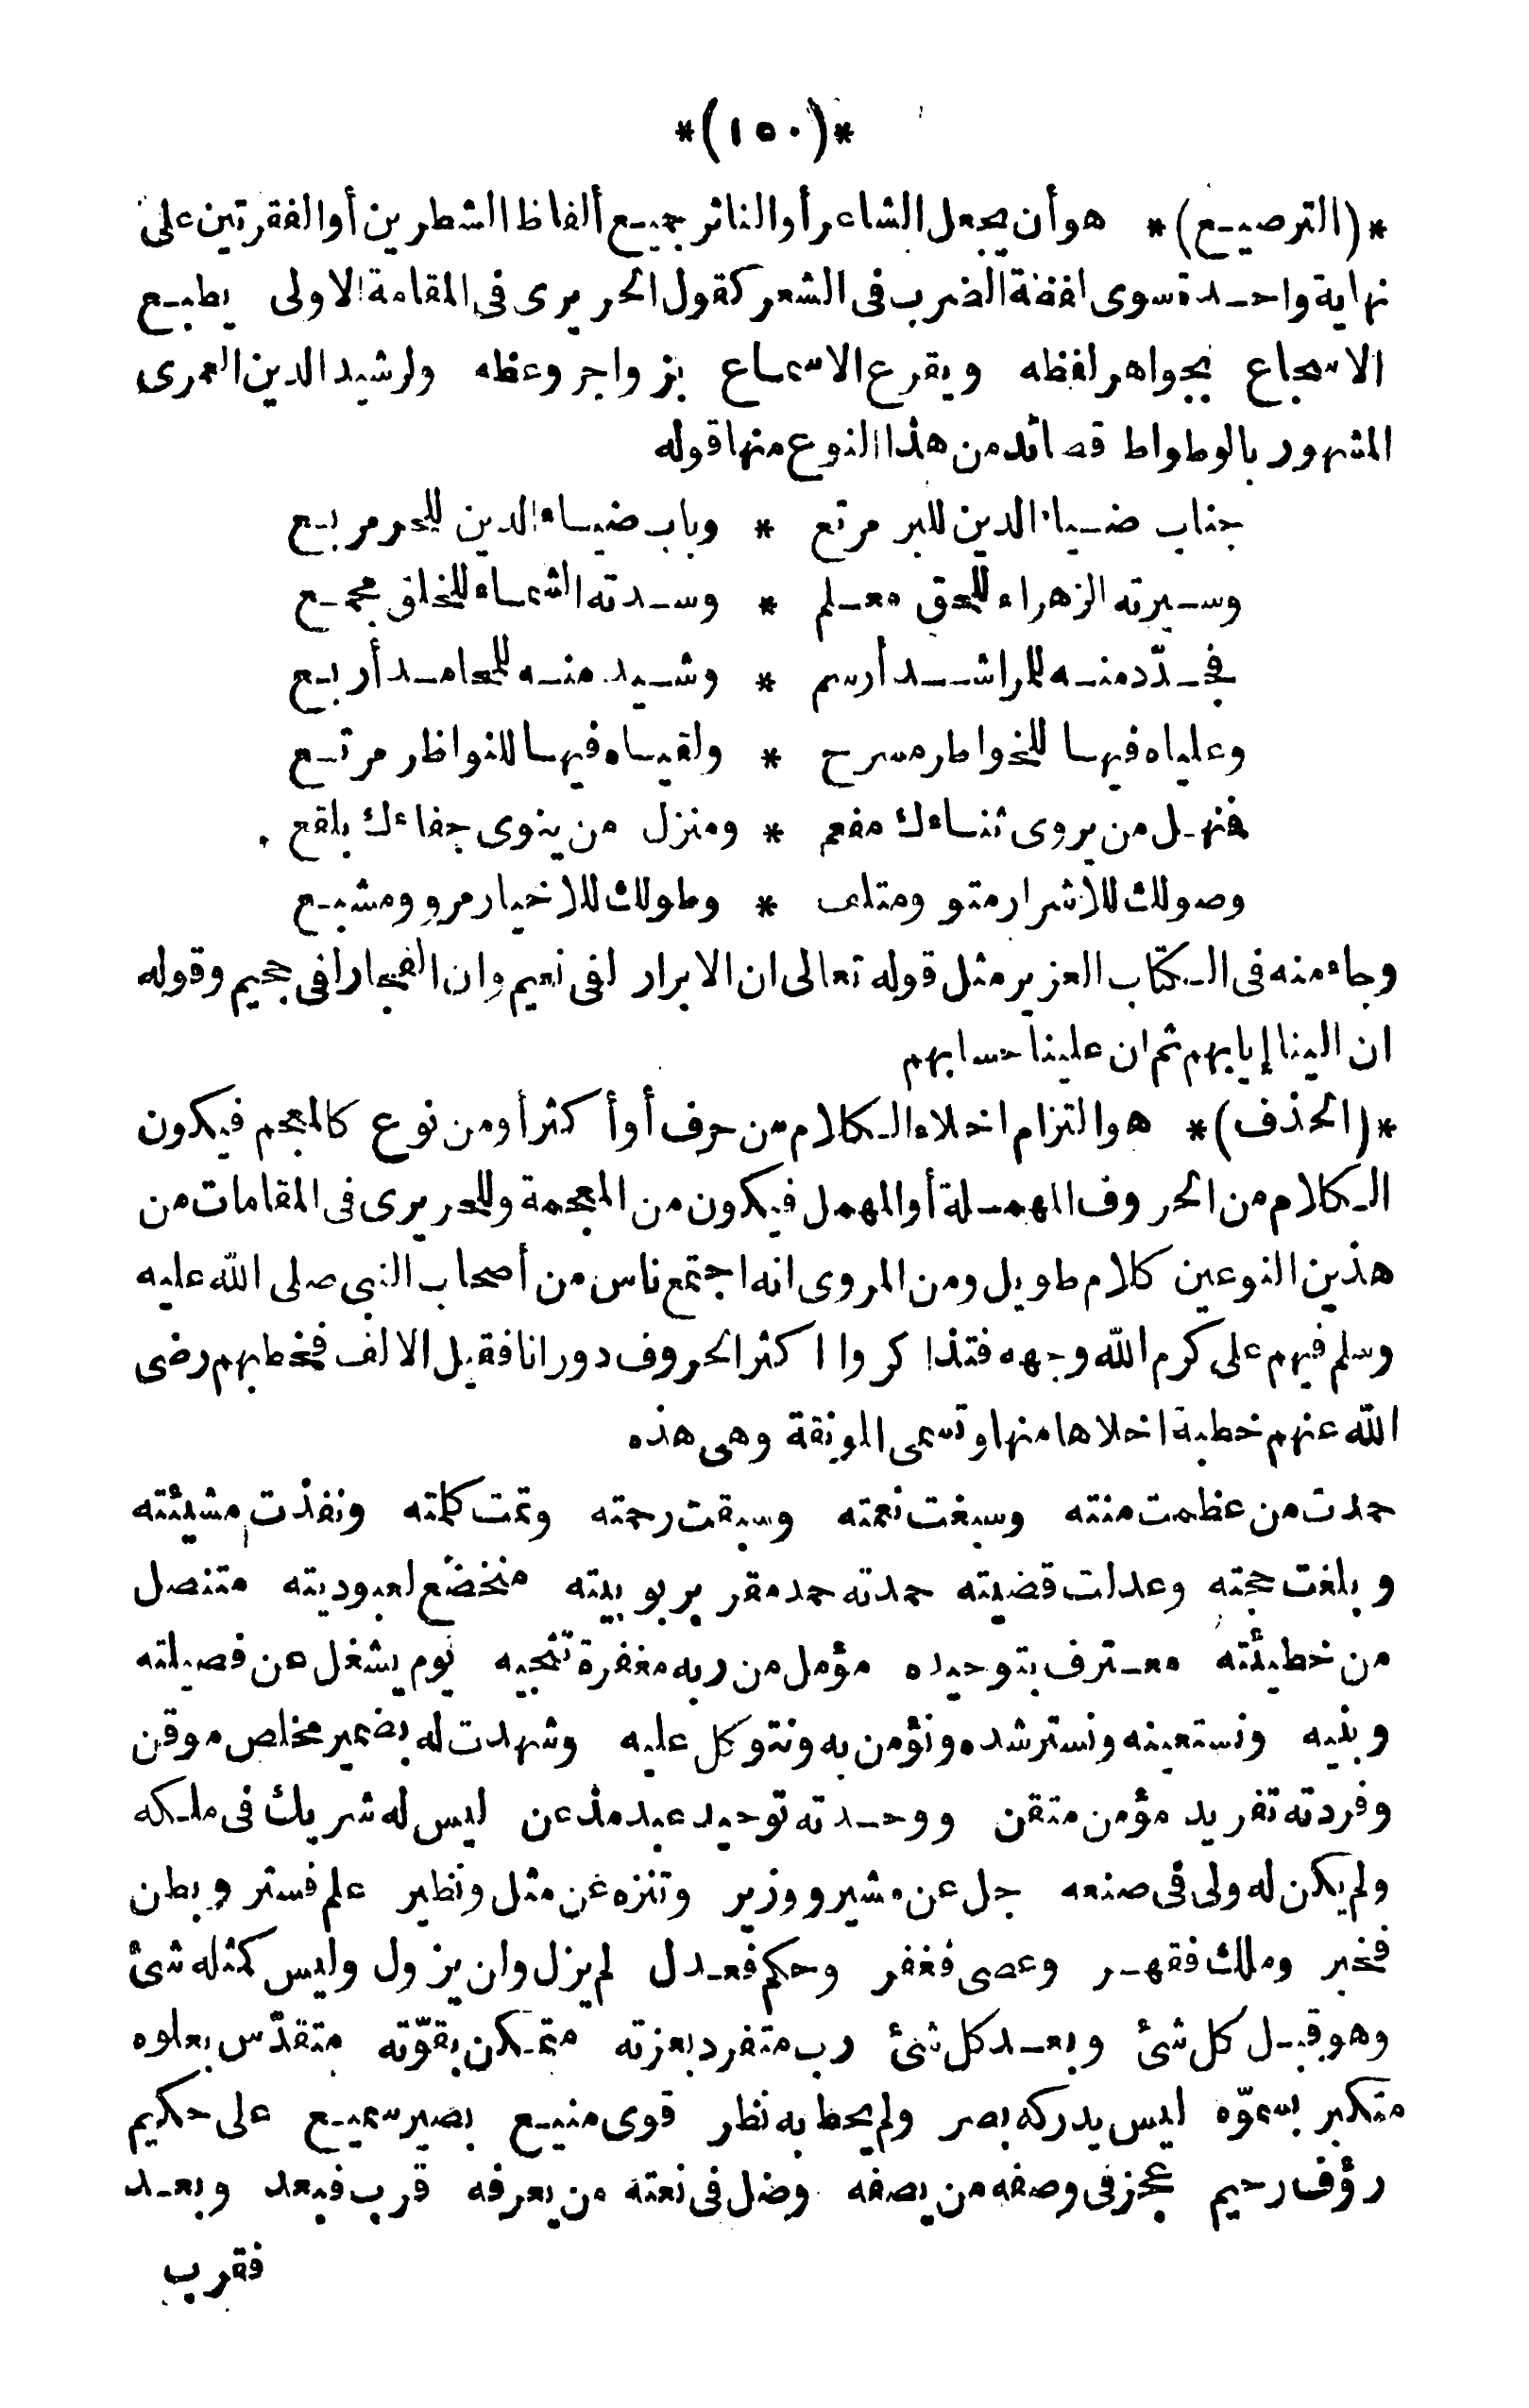 *(١٥٠)*
*(الترصيع)* هو أن يجعل الشاعر أو الناثر جميع ألفاظ الشطرين أو الفقرتين على
نهاية واحدة سوى لفظة الضرب فى الشعر كقول الحريرى فى المقامة الاولى يطبع
الاسجاع بجواهر لفظه ويقرع الاسماع بزواجر وعظه ولرشيد الدين العمرى
المشهور بالوطواط قصائد من هذا النوع منها قوله
جناب ضياء الدين للبر مرتع * وباب ضياء الدين للحر مربع
وسيرته الزهراء للحق معلم * وسدته الشماء للخلق مجمع
فجدّد منه للراشد أرسم * وشيد منه للمحامد أربع
وعلياه فيها للخواطر مسرح * ولقياه فيها للنواظر مرتع
فنهل من يروى ثناءك مفعم * ومنزل من ينوى جفاءك بلقع
وصولك للاشرار متو ومتلف * وطولك للاخيار مرو ومشبع
وجاء منه فى الكتاب العزيز مثل قوله تعالى ان الابرار لفى نعيم وان الفجار لفى جحيم وقوله
ان الينا إيابهم ثم ان علينا حسابهم
*(الحذف)* هو التزام اخلاء الكلام من حرف أو أكثر أو من نوع كالمعجم فيكون
الكلام من الحروف المهملة أو المهمل فيكون من المعجمة وللحريرى فى المقامات من
هذين النوعين كلام طويل ومن المروى انه اجتمع ناس من أصحاب النبى صلى الله عليه
وسلم فيهم على كرم الله وجهه فتذاكروا اكثر الحروف دورانا فقيل الالف فخطبهم رضى
الله عنهم خطبة اخلاها منها وتسمى المونقة وهى هذه
حمدت من عظمت منته وسبغت نعمته وسبقت رحمته وتمت كلمته ونفذت مشيئته
وبلغت حجته وعدلت قضيته حمدته حمد مقر بربوبيته متخضع لعبوديته متنصل
من خطيئته معترف بتوحيده مؤمل من ربه مغفرة تنجيه يوم يشغل عن فصيلته
وبنيه ونستعينه ونسترشده ونؤمن به ونتوكل عليه وشهدت له بضمير مخلص موقن
وفردته تفريد مؤمن متقن ووحدته توحيد عبد مذعن ليس له شريك فى ملكه
ولم يكن له ولى فى صنعه جل عن مشير ووزير وتنزه عن مثل ونظير علم فستر وبطن
فخبر وملك فقهر وعصى فغفر وحكم فعدل لم يزل ولن يزول وليس كمثله شئ
وهو قبل كل شئ وبعد كل شئ رب متفرد بعزته متمكن بقوّته متقدّس بعلوه
متكبر بسموّه ليس يدركه بصر ولم يحط به نظر قوى منيع بصير سميع على حكيم
رؤف رحيم عجز فى وصفه من يصفه وضل فى نعته من يعرفه قرب فبعد وبعد
فقرب